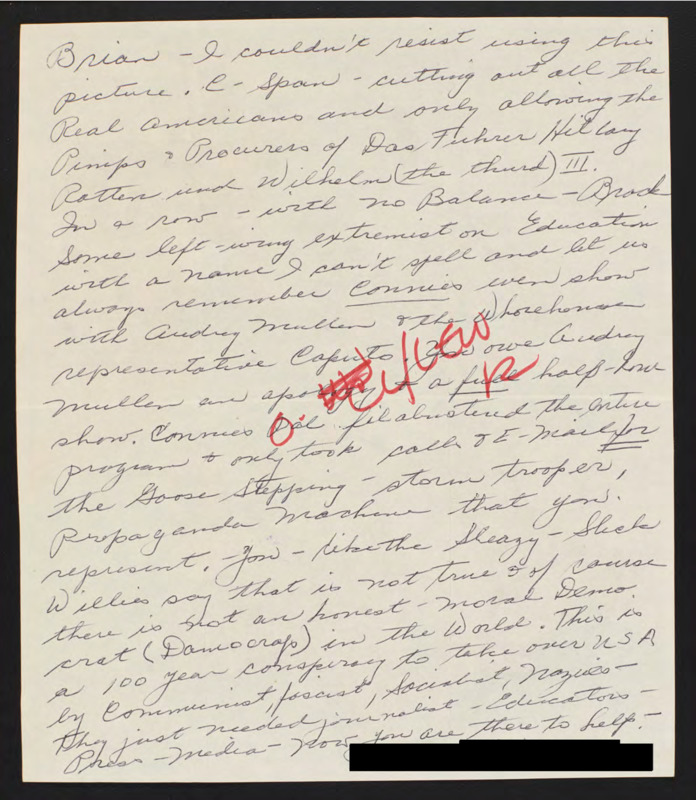 Brian - I couldn't resist using this
picture. C-Span - cutting out all the
Real Americans and only allowing the
Pimps & Procurers of Das Fuhrer Hillary
Rotten und Wilhelm (the third) III.
In a row - with no Balance - Brock
Some left-wing extremist on Education
with a name I can't spell and let us
always remember Connies even show
with Audrey Mullen & the Whorehouse
representative Caputo. You owe Audrey
Mullen an apology & a full half-hour
show. Connies Pal filabustered the entire
program & only took calls & E-Mail for
the Goose Stepping - storm trooper,
Propaganda Machine that you
represent. You - like the Sleazy-Slick
Willies say that is not true & of course
there is not an honest - moral Demo-
crat (Damocrap) in the World. This is
a 100 year conspiracy to take over USA
by Communist, fascist, Socialist, Nazies -
they just needed journalist - Educators -
Press - Media - Now you are there to help. -